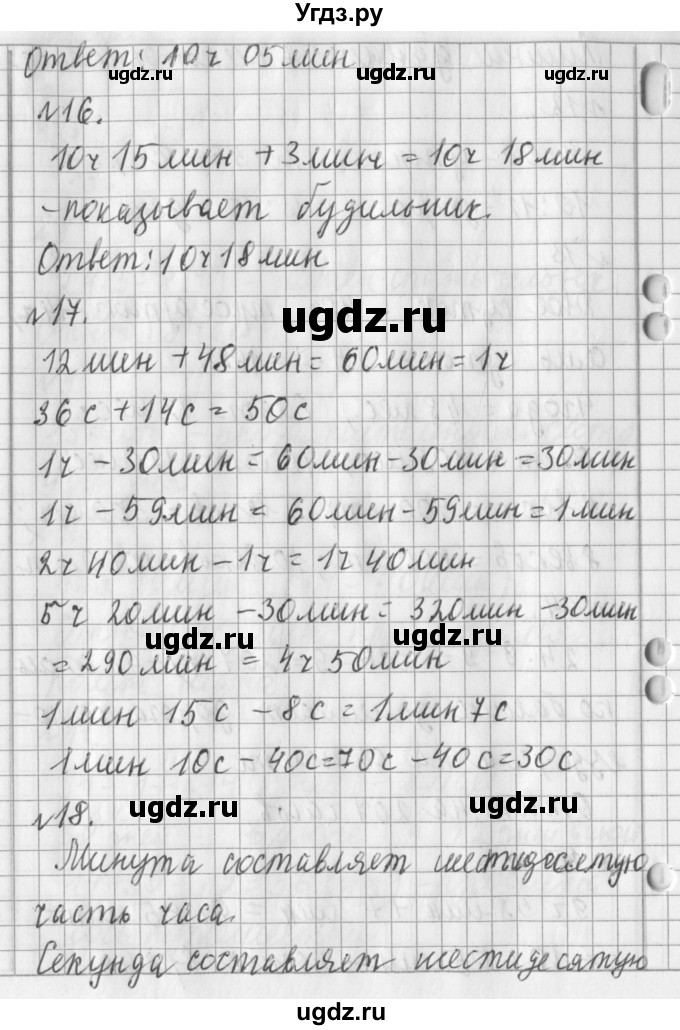 Угдз.ру
Ответ: 10ч 05мин
ugdz.ru ugdz.ru ugdz.ru
№16.
10ч 15мин + 3мин = 10ч 18мин
- показывает будильник.
Ответ: 10ч 18мин
№17.
ugdz.ru
12мин + 48мин = 60мин = 1ч
36с + 14с = 50с
1ч - 30мин = 60мин - 30мин = 30мин
1ч - 59мин = 60мин - 59мин = 1мин
2ч 40мин - 1ч = 1ч 40мин
5ч 20мин - 30мин = 320мин - 30мин
ugdz.ru ugdz.ru
= 290мин = 4ч 50мин
1мин 15с - 8с = 1мин 7с
1мин 10с - 40с = 70с - 40с = 30с
№18.
ugdz.ru ugdz.ru
Минута составляет шестидесятую
часть часа.
Секунда составляет шестидесятую
ugdz.ru